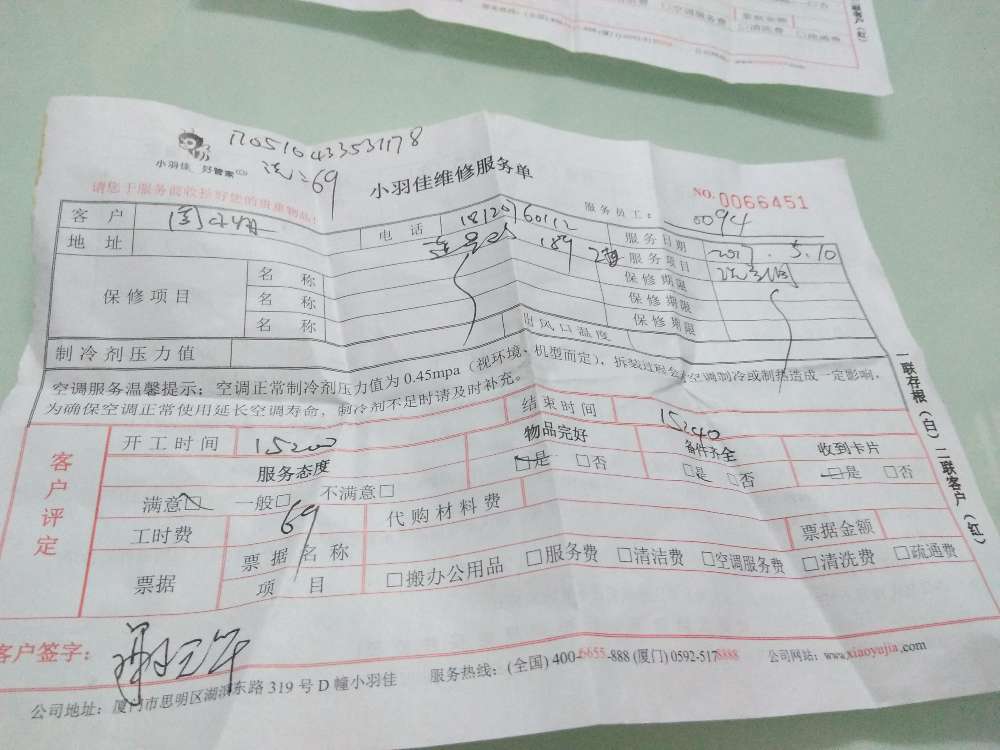 服务热线:(全国)
□空调服务费
票据金额
□清洗费 □疏通费
二联客户(红)
小羽佳 好管家
170510433531178
洗:69
小羽佳维修服务单
NO. 0066451
请您于服务前收捡好您的贵重物品!
服务员工: 0094
客户 电话 18120760112 服务日期 2017.5.10
地址 189 服务项目
保修项目 名称 保修期限
名称 保修期限
名称 保修期限
制冷剂压力值 出风口温度
空调服务温馨提示:空调正常制冷剂压力值为0.45mpa(视环境、机型而定),拆装过程会对空调制冷或制热造成一定影响,
为确保空调正常使用延长空调寿命,制冷剂不足时请及时补充。
客户评定
开工时间 15:00 结束时间 15:40
服务态度 物品完好 备件齐全 收到卡片
满意□ 一般□ 不满意□ □是 □否 □是 □否 □是 □否
工时费 69 代购材料费 票据金额
票据 票据名称
项目 □搬办公用品 □服务费 □清洁费 □空调服务费 □清洗费 □疏通费
一联存根(白) 二联客户(红)
客户签字:
公司地址:厦门市思明区湖滨东路319号D幢小羽佳 服务热线:(全国)400-6655-888 (厦门)0592-5178888 公司网站:www.xiaoyujia.com